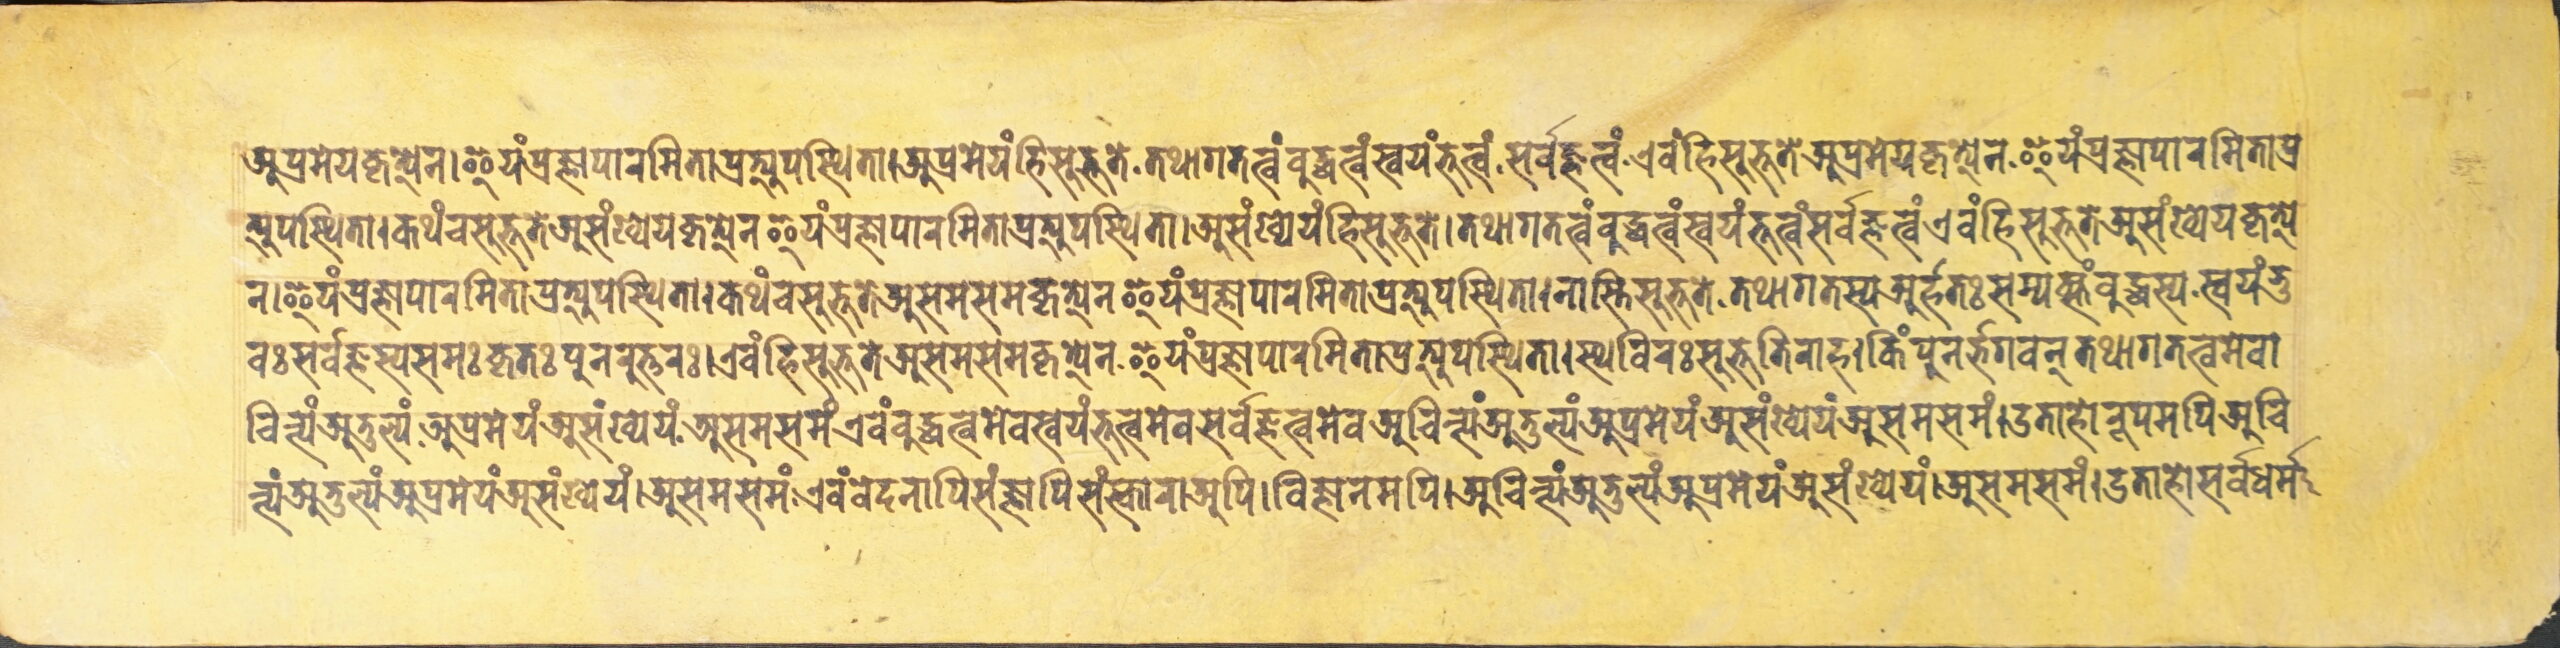 अप्रमेयकृत्येन।इयंप्रज्ञापारमिताप्रत्युपस्थिता।अप्रमेयंहिसुभूते.तथागतत्वंबुद्धत्वंस्वयंभूत्वं.सर्वज्ञत्वं.एवंहिसुभूतेअप्रमेयकृत्येन.इयंप्रज्ञापारमिताप्र
त्युपस्थिता।कथंचसुभूतेअसंख्येयकृत्येनइयंप्रज्ञापारमिताप्रत्युपस्थिता।असंख्येयंहिसुभूते।तथागतत्वंबुद्धत्वंस्वयंभूत्वंसर्वज्ञत्वंएवंहिसुभूतेअसंख्येयकृत्ये
न।इयंप्रज्ञापारमिताप्रत्युपस्थिता।कथंचसुभूतेअसमसमकृत्येनइयंप्रज्ञापारमिताप्रत्युपस्थिता।नास्तिसुभूते.तथागतस्यअर्हतःसम्यक्संबुद्धस्य.स्वयंभु
वःसर्वज्ञस्यसमःकृतःपुनरुत्तरः।एवंहिसुभूतेअसमसमकृत्येन.इयंप्रज्ञापारमिताप्रत्युपस्थिता।स्थविरःसुभूतिराह।किंपुनर्भगवन्तथागतत्वमेवा
चिन्त्यंअतुल्यं.अप्रमेयंअसंख्येयं.असमसमंएवंबुद्धत्वमेवस्वयंभूत्वमेवसर्वज्ञत्वमेवअचिन्त्यंअतुल्यंअप्रमेयंअसंख्येयंअसमसमं।उताहोरूपमपिअचि
न्त्यंअतुल्यंअप्रमेयंअसंख्येयं।असमसमं.एवंवेदनापिसंज्ञापिसंस्काराअपि।विज्ञानमपि।अचिन्त्यंअतुल्यंअप्रमेयंअसंख्येयं।असमसमं।उताहोसर्वधर्मा